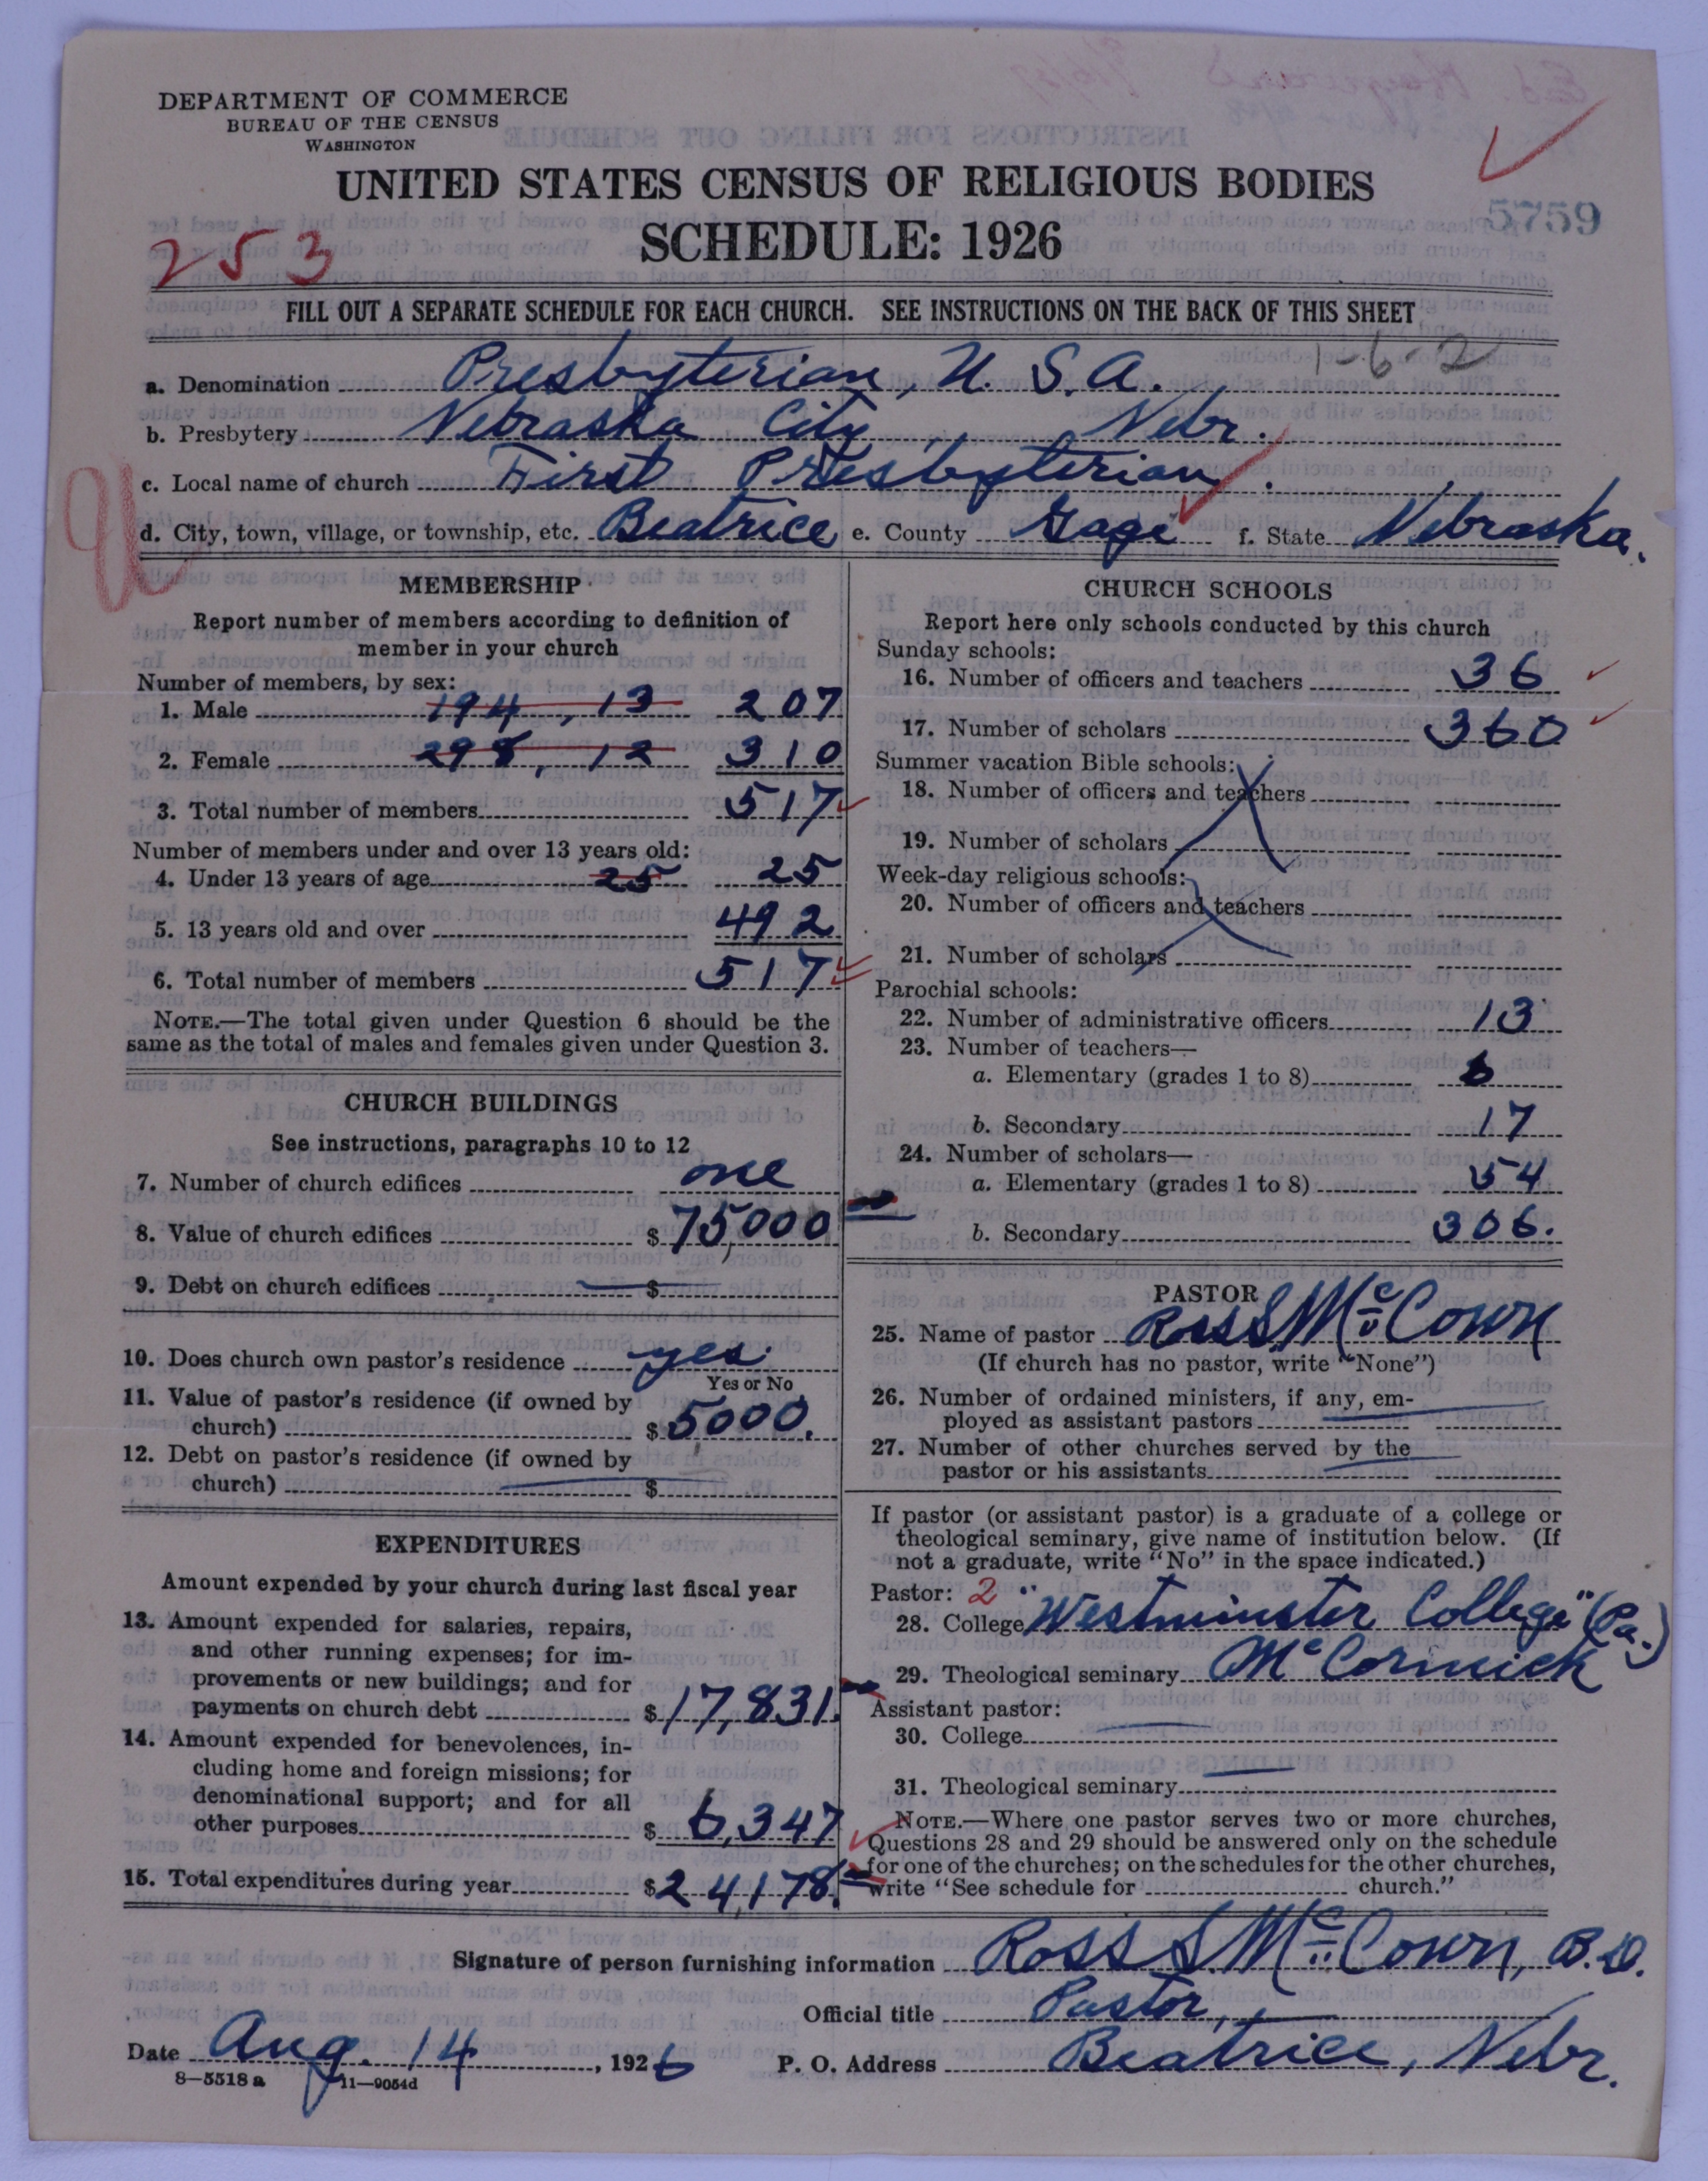 DEPARTMENT OF COMMERCE
BUREAU OF THE CENSUS
WASHINGTON
UNITED STATES CENSUS OF RELIGIOUS BODIES
SCHEDULE: 1926
5759
253
FILL OUT A SEPARATE SCHEDULE FOR EACH CHURCH. SEE INSTRUCTIONS ON THE BACK OF THIS SHEET
1-6-2
a. Denomination Presbyterian, U. S. A.
b. Presbytery Nebraska City, Nebr.
c. Local name of church First Presbyterian.
d. City, town, village, or township, etc. Beatrice e. County Gage f. State Nebraska.
MEMBERSHIP
Report number of members according to definition of
member in your church
Number of members, by sex:
1. Male 194, 13 207
2. Female 298, 12 310
3. Total number of members 517
Number of members under and over 13 years old:
4. Under 13 years of age 25 25
5. 13 years old and over 492
6. Total number of members 517
NOTE.—The total given under Question 6 should be the
same as the total of males and females given under Question 3.
CHURCH BUILDINGS
See instructions, paragraphs 10 to 12
7. Number of church edifices one
8. Value of church edifices $75,000
9. Debt on church edifices $
10. Does church own pastor's residence yes.
Yes or No
11. Value of pastor's residence (if owned by
church) $5000.
12. Debt on pastor's residence (if owned by
church) $
EXPENDITURES
Amount expended by your church during last fiscal year
13. Amount expended for salaries, repairs,
and other running expenses; for im-
provements or new buildings; and for
payments on church debt $17,831.
14. Amount expended for benevolences, in-
cluding home and foreign missions; for
denominational support; and for all
other purposes $6,347
15. Total expenditures during year $24,178.
CHURCH SCHOOLS
Report here only schools conducted by this church
Sunday schools:
16. Number of officers and teachers 36
17. Number of scholars 360
Summer vacation Bible schools:
18. Number of officers and teachers
19. Number of scholars
Week-day religious schools:
20. Number of officers and teachers
21. Number of scholars
Parochial schools:
22. Number of administrative officers 13
23. Number of teachers—
a. Elementary (grades 1 to 8) 6
b. Secondary 17
24. Number of scholars—
a. Elementary (grades 1 to 8) 54
b. Secondary 306.
PASTOR
25. Name of pastor Ross S. McCown
(If church has no pastor, write "None")
26. Number of ordained ministers, if any, em-
ployed as assistant pastors
27. Number of other churches served by the
pastor or his assistants
If pastor (or assistant pastor) is a graduate of a college or
theological seminary, give name of institution below. (If
not a graduate, write "No" in the space indicated.)
Pastor: 2
28. College "Westminster College" (Pa.)
29. Theological seminary McCormick
Assistant pastor:
30. College
31. Theological seminary
NOTE.—Where one pastor serves two or more churches,
Questions 28 and 29 should be answered only on the schedule
for one of the churches; on the schedules for the other churches,
write "See schedule for church."
Signature of person furnishing information Ross S. McCown, B.D.
Official title Pastor,
Date Aug. 14, 1926 P. O. Address Beatrice, Nebr.
8—5518 a 11—9054d